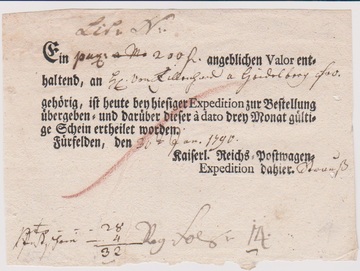 Lit: N:
Ein 200 f. angeblichen Valor ent-
haltend, an H. von a Heidelberg
gehörig, ist heute bey hiesiger Expedition zur Bestellung
übergeben - und darüber dieser à dato drey Monat gülti-
ge Schein ertheilet worden.
Fürfelden, den Jan. 1790.
Kaiserl. Reichs-Postwagen-
Expedition dahier. Strauß
28
4
32